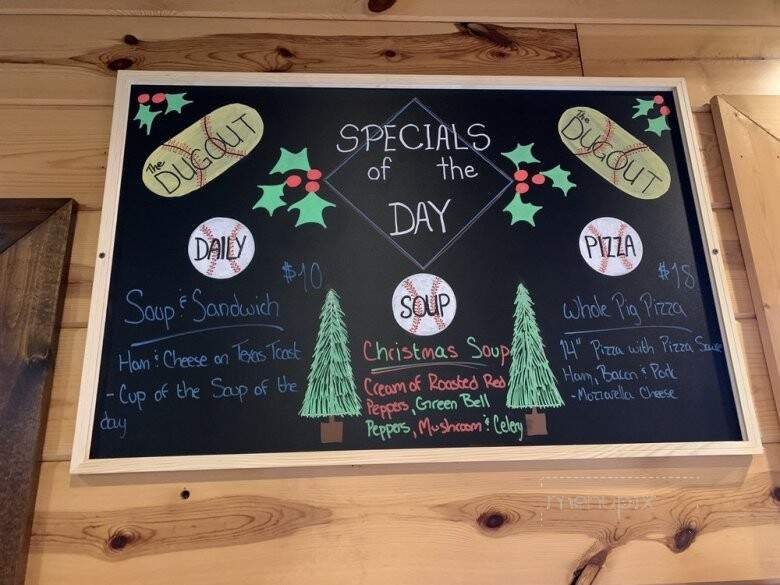 The DUGOUT
SPECIALS
of the
DAY
The DUGOUT
DAILY
$10
Soup & Sandwich
Ham & Cheese on Texas Toast
- Cup of the Soup of the
day
SOUP
Christmas Soup
Cream of Roasted Red
Peppers, Green Bell
Peppers, Mushroom & Celery
PIZZA
$18
Whole Pig Pizza
14" Pizza with Pizza Sauce
Ham, Bacon & Pork
- Mozzarella Cheese
menupix